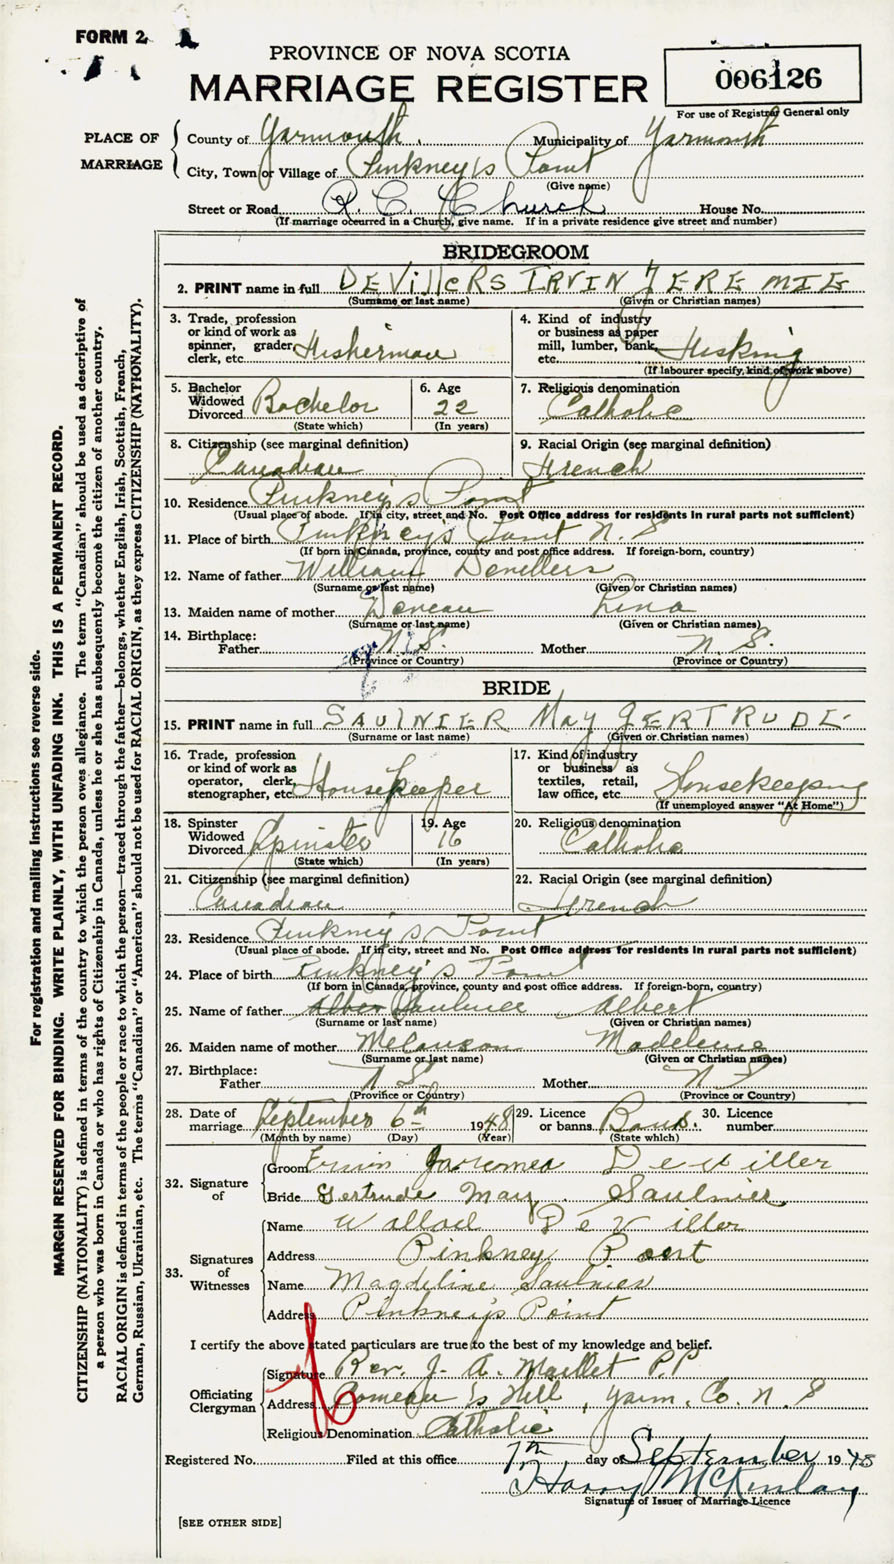 FORM 2
PROVINCE OF NOVA SCOTIA
MARRIAGE REGISTER
006126
For use of Registrar General only
PLACE OF MARRIAGE
County of Yarmouth. Municipality of Yarmouth
City, Town or Village of Pinkney's Point
(Give name)
Street or Road R. C. Church House No.
(If marriage occurred in a Church, give name. If in a private residence give street and number)
BRIDEGROOM
2. PRINT name in full DEVillERS IRVIN JEREMIE
(Surname or last name) (Given or Christian names)
3. Trade, profession or kind of work as spinner, grader, clerk, etc. Fisherman
4. Kind of industry or business as paper mill, lumber, bank, etc. Fishing
(If labourer specify, kind of work above)
5. Bachelor Widowed Divorced Bachelor
(State which)
6. Age 22
(In years)
7. Religious denomination Catholic
8. Citizenship (see marginal definition) Canadian
9. Racial Origin (see marginal definition) French
10. Residence Pinkney's Point
(Usual place of abode. If in city, street and No. Post Office address for residents in rural parts not sufficient)
11. Place of birth Pinkney's Point N. S
(If born in Canada, province, county and post office address. If foreign-born, country)
12. Name of father William Devillers
(Surname or last name) (Given or Christian names)
13. Maiden name of mother Deneau Lina
(Surname or last name) (Given or Christian names)
14. Birthplace:
Father N. S. Mother N. S.
(Province or Country) (Province or Country)
BRIDE
15. PRINT name in full SAULNIER May GERTRUDE
(Surname or last name) (Given or Christian names)
16. Trade, profession or kind of work as operator, clerk, stenographer, etc. Housekeeper
17. Kind of industry or business as textiles, retail, law office, etc. Housekeeping
(If unemployed answer "At Home")
18. Spinster Widowed Divorced Spinster
(State which)
19. Age 16
(In years)
20. Religious denomination Catholic
21. Citizenship (see marginal definition) Canadian
22. Racial Origin (see marginal definition) French
23. Residence Pinkney's Point
(Usual place of abode. If in city, street and No. Post Office address for residents in rural parts not sufficient)
24. Place of birth Pinkney's Point
(If born in Canada, province, county and post office address. If foreign-born, country)
25. Name of father Saulnier Albert
(Surname or last name) (Given or Christian names)
26. Maiden name of mother Melanson Madeleine
(Surname or last name) (Given or Christian names)
27. Birthplace:
Father N S. Mother N S
(Province or Country) (Province or Country)
28. Date of marriage September 6th 1948
(Month by name) (Day) (Year)
29. Licence or banns Banns.
(State which)
30. Licence number
32. Signature of
Groom Dewiller
Bride Gertrude May Saulnier
33. Signatures of Witnesses
Name DeViller
Address Pinkney Point
Name Magdeline Saulnier
Address Pinkney's Point
I certify the above stated particulars are true to the best of my knowledge and belief.
Officiating Clergyman
Signature Rev. J. A. Maillet P.P
Address Comeau's Hill, Yarm. Co. N. S
Religious Denomination Catholic
Registered No. Filed at this office 7th day of September 1948
Harry McKinlay
Signature of Issuer of Marriage Licence
[SEE OTHER SIDE]
For registration and mailing instructions see reverse side.
MARGIN RESERVED FOR BINDING. WRITE PLAINLY, WITH UNFADING INK. THIS IS A PERMANENT RECORD.
CITIZENSHIP (NATIONALITY) is defined in terms of the country to which the person owes allegiance. The term "Canadian" should be used as descriptive of
a person who was born in Canada or who has rights of Citizenship in Canada, unless he or she has subsequently become the citizen of another country.
RACIAL ORIGIN is defined in terms of the people or race to which the person—traced through the father—belongs, whether English, Irish, Scottish, French,
German, Russian, Ukrainian, etc. The terms "Canadian" or "American" should not be used for RACIAL ORIGIN, as they express CITIZENSHIP (NATIONALITY).